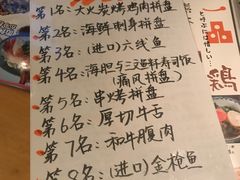 第1名：大火岩烤鸡肉拼盘
第2名：海鲜刺身拼盘
第3名：(进口)六线鱼
第4名：海胆与三文鱼籽寿司饭
(痛风拼盘)
第5名：串烤拼盘
第6名：厚切牛舌
第7名：和牛腹肉
第8名：(进口)金枪鱼
一品
鶏